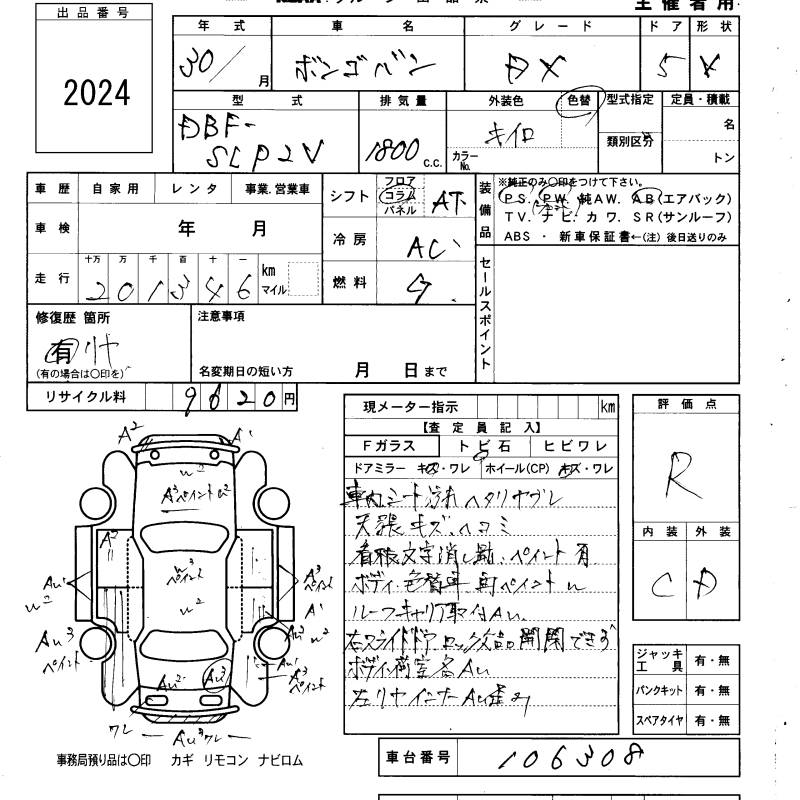 主催者用
出品番号
2024
年式 車名 グレード ドア 形状
30/ 月 ボンゴバン DX 5 V
型式 排気量 外装色 色替 型式指定 定員・積載
DBF-
SLP2V 1800 c.c. キイロ カラーNo. 類別区分 名
トン
車歴 自家用 レンタ 事業.営業車
車検 年 月
走行 十万 万 千 百 十 一 km マイル
2 0 1 3 4 6
シフト フロア コラム パネル AT
冷房 AC
燃料 G
装備品
※純正のみ〇印をつけて下さい。
PS. PW. 純AW. AB(エアバック)
TV. ナビ. カワ. SR(サンルーフ)
ABS ・ 新車保証書←(注) 後日送りのみ
セールスポイント
修復歴 箇所
有 リヤ
(有の場合は〇印を)
注意事項
名変期日の短い方 月 日まで
リサイクル料 9620円
現メーター指示 km
【査定員記入】
Fガラス トビ石 ヒビワレ
ドアミラー キズ・ワレ ホイール(CP) キズ・ワレ
車内シート汚れヘタリヤブレ
天張キズ、ヘコミ
看板文字消し跡、ペイント有
ボディ色替車 再ペイントW
ルーフキャリア取付AU.
右スライドドア ロック 開閉できず
ボディ荷室各AU
左リヤインナーAU
評価点
R
内装 外装
C D
ジャッキ工具 有・無
パンクキット 有・無
スペアタイヤ 有・無
車台番号 106308
A2 A1
W2
A3ペイントW2
A2
W3
ペイント
W2
AU1
W2
AU3
ペイント
A3
ペイント
A1
AU3 W2
AU1
A3
ペイント
AU2 AU3
ワレ AU3ワレ
事務局預り品は〇印 カギ リモコン ナビロム